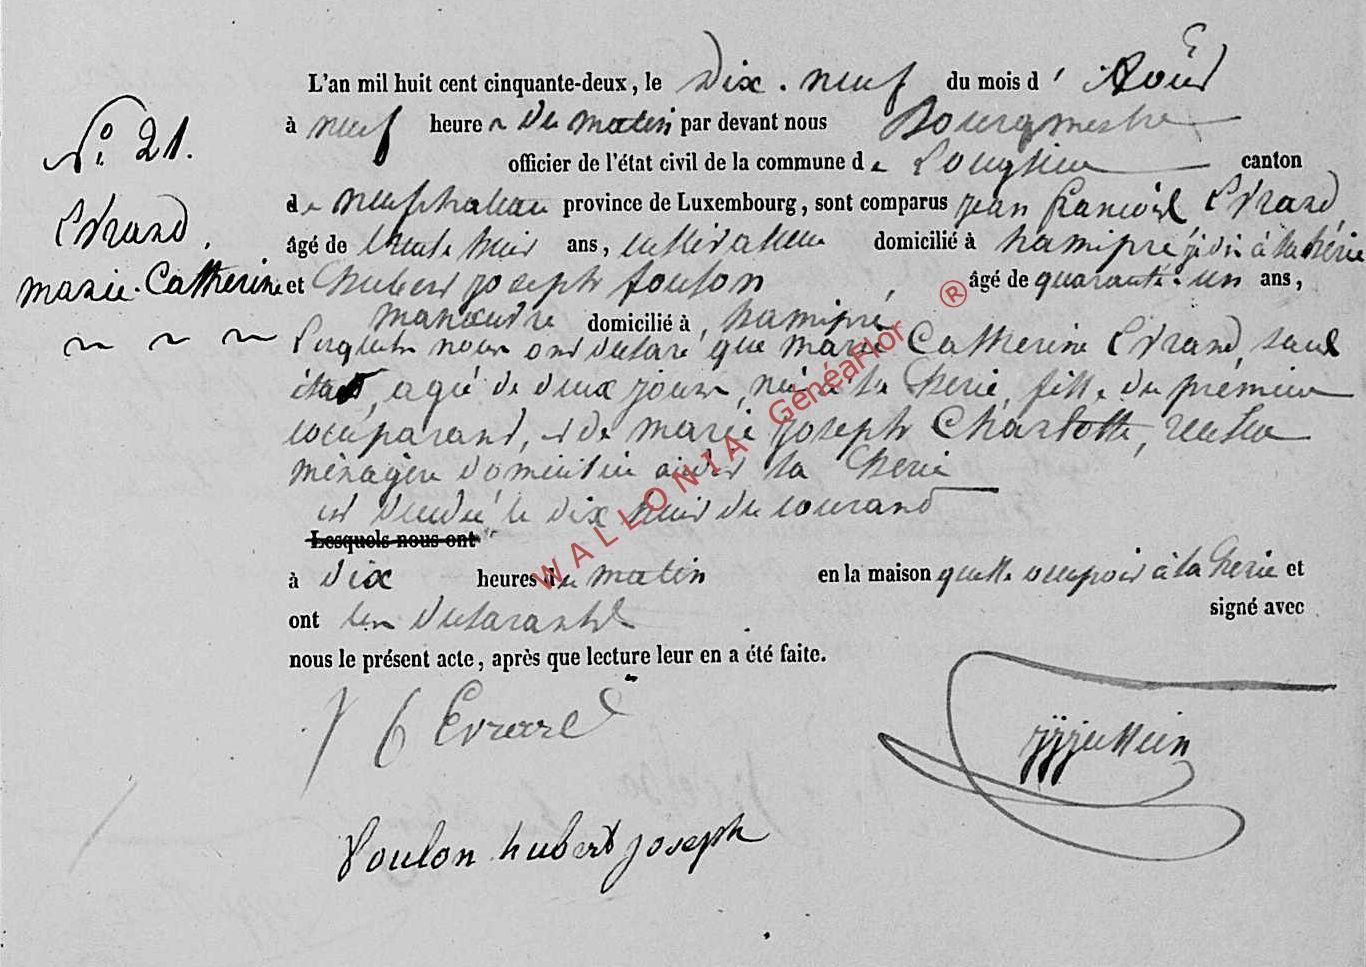 L'an mil huit cent cinquante-deux, le Dix-neuf du mois d' Août
à neuf heure du matin par devant nous Bourgmestre
officier de l'état civil de la commune de Longlier canton
de neufchateau province de Luxembourg, sont comparus jean françois Evrard,
âgé de trente huit ans, cultivateur domicilié à hamipré
et hubert joseph foulon âgé de quarante-un ans,
manœuvre domicilié à hamipré
Lesquels nous ont déclaré que marie Catherine Evrard,
étant agé de deux jours, née à la herie, fille du prémier
comparant, et de marie joseph Charlotte,
ménagère domicilié avec la herie
est décédé le dix huit du courant
Lesquels nous ont
à dix heures du matin en la maison qu'elle occupoit à la herie et
ont les déclarants signé avec
nous le présent acte, après que lecture leur en a été faite.
N° 21.
Evrard,
marie-Catherine
j f Evrard
foulon hubert joseph
WALLONIA GenéaFlor ®